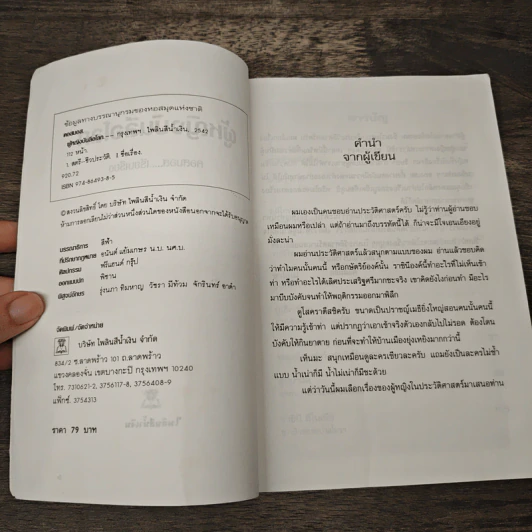 ข้อมูลทางบรรณานุกรมของหอสมุดแห่งชาติ
คอสมอส.
ผู้หญิงบันลือโลก.-- กรุงเทพฯ : ไพลินสีน้ำเงิน, 2542
112 หน้า.
1. สตรี--ชีวประวัติ. I. ชื่อเรื่อง.
920.72
ISBN 974-86493-8-5
©สงวนลิขสิทธิ์ โดย บริษัท ไพลินสีน้ำเงิน จำกัด
ห้ามการลอกเลียนไม่ว่าส่วนหนึ่งส่วนใดของหนังสือนอกจากจะได้รับอนุญาต
บรรณาธิการ
ที่ปรึกษากฎหมาย อนันต์ แย้มเกษร น.บ. นศ.บ.
ศิลปกรรม พรีแฮนด์ กรุ๊ป
ออกแบบปก พิชาน
พิสูจน์อักษร รุ่งนภา ทิมหาญ วัชรา มีท้วม จักรินทร์ อาดำ
จัดพิมพ์/จัดจำหน่าย
บริษัท ไพลินสีน้ำเงิน จำกัด
834/2 ซ.ลาดพร้าว 101 ถ.ลาดพร้าว
แขวงคลองจั่น เขตบางกะปิ กรุงเทพฯ 10240
โทร. 7310621-2, 3756117-8, 3756408-9
แฟ็กซ์. 3754313
ราคา 79 บาท
คำนำ
จากผู้เขียน
ผมเองเป็นคนชอบอ่านประวัติศาสตร์ครับ ไม่รู้ว่าท่านผู้อ่านชอบ
เหมือนผมหรือเปล่า แต่ถ้าอ่านมาถึงบรรทัดนี้ได้ ก็น่าจะมีใจเอนเอียงอยู่
มั่งละน่า
อ่านประวัติศาสตร์แล้วสนุกตามแบบของผม อ่านแล้วชอบคิด
ว่าทำไมคนนั้นคนนี้ หรือกษัตริย์องค์นั้น ราชินีองค์นี้ทำอะไรที่ไม่เห็นเข้า
ท่า หรือทำอะไรได้เลิศประเสริฐศรีมากซะจริง เขาคิดยังไงก่อนทำ มีอะไร
มาบีบบังคับจนทำให้พฤติกรรมออกมาพิลึก
ดูโสคราตีสซีครับ ขนาดเป็นปราชญ์เมธียิ่งใหญ่สอนคนนั้นคนนี้
ให้มีความรู้เข้าท่า แต่ปรากฏว่าเอาเข้าจริงตัวเองกลับไปไม่รอด ต้องโดน
บังคับให้กินยาตาย ก่อนที่จะทำให้บ้านเมืองยุ่งเหยิงมากกว่านี้
เห็นมะ สนุกเหมือนดูละครเชียวละครับ แถมยังเป็นละครไม่ซ้ำ
แบบ น้ำเน่าก็มี น้ำไม่เน่าก็มีซะด้วย
แต่ว่าวันนี้ผมเลือกเรื่องของผู้หญิงในประวัติศาสตร์มาเสนอท่าน